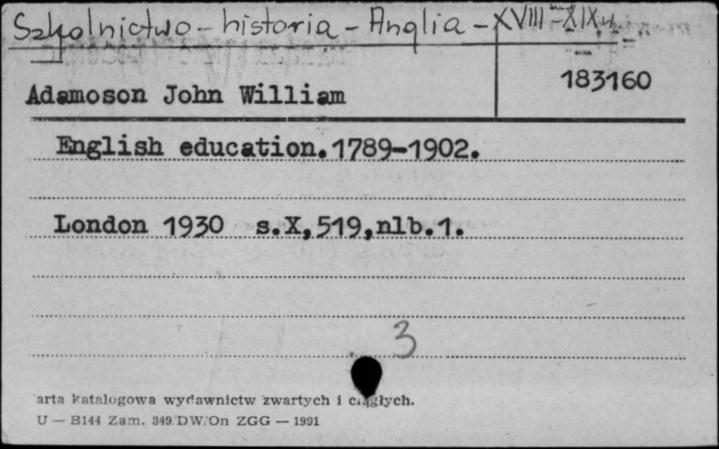 Szkolnictwo - historia - Anglia - XVIII-XIX w.
183160
Adamoson John William
English education.1789-1902.
London 1930 s.X,519,nlb.1.
3
arta katalogowa wydawnictw zwartych i ciągłych.
U — B144 Zam. 349/DW/On ZGG — 1991